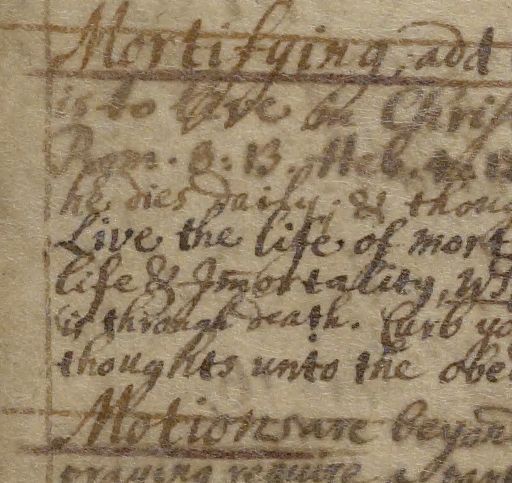 Mortifying, add
is to live on Chris
Rom. 8. 13. Heb.
he dies daily, & thoug
Live the life of mort
life & Imortality, wh
is through death. Curb yo
thoughts unto the obe
Motions are beyon
require a